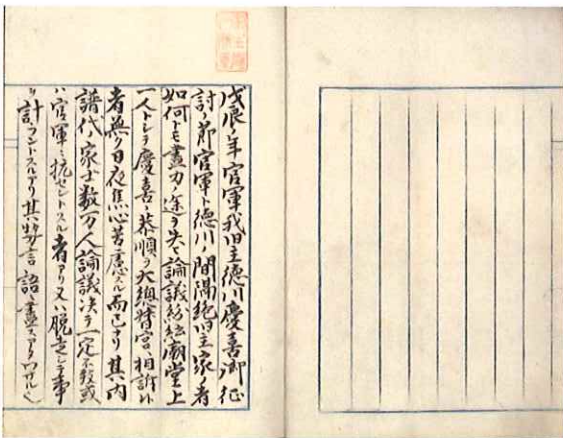 戊辰ノ年官軍我旧主徳川慶喜御征
討ノ節官軍ト徳川ノ間隔絶旧主家ノ者
如何トモ尽力ノ途ヲ失ヒ論議紛紜廟堂上
一人トシテ慶喜ノ恭順ヲ大総督宮ヘ相訴ル
者無ク日夜焦心苦慮スル而已ナリ其内
譜代ノ家士数万人論議決テ一定不致或
ハ官軍ニ抗セントスル者アリ又ハ脱走シテ事
ヲ計ラントスルアリ其勢言語ニ尽ス